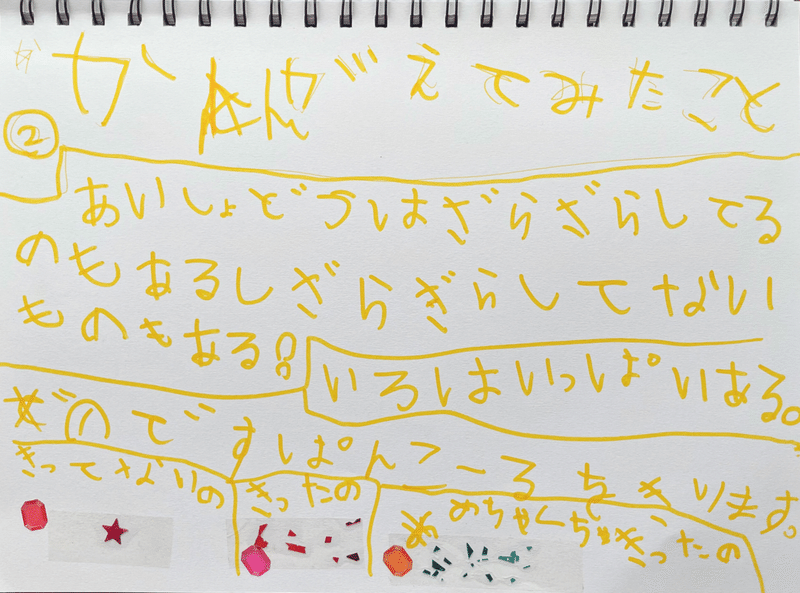 かんがえてみたこと
②
あいしょどうはざらざらしてる
のもあるしざらざらしてない
ものもある。
いろはいっぱいある。
のです
ぱんこーるもきります。
きってないの
きったの
めちゃくちゃきったの